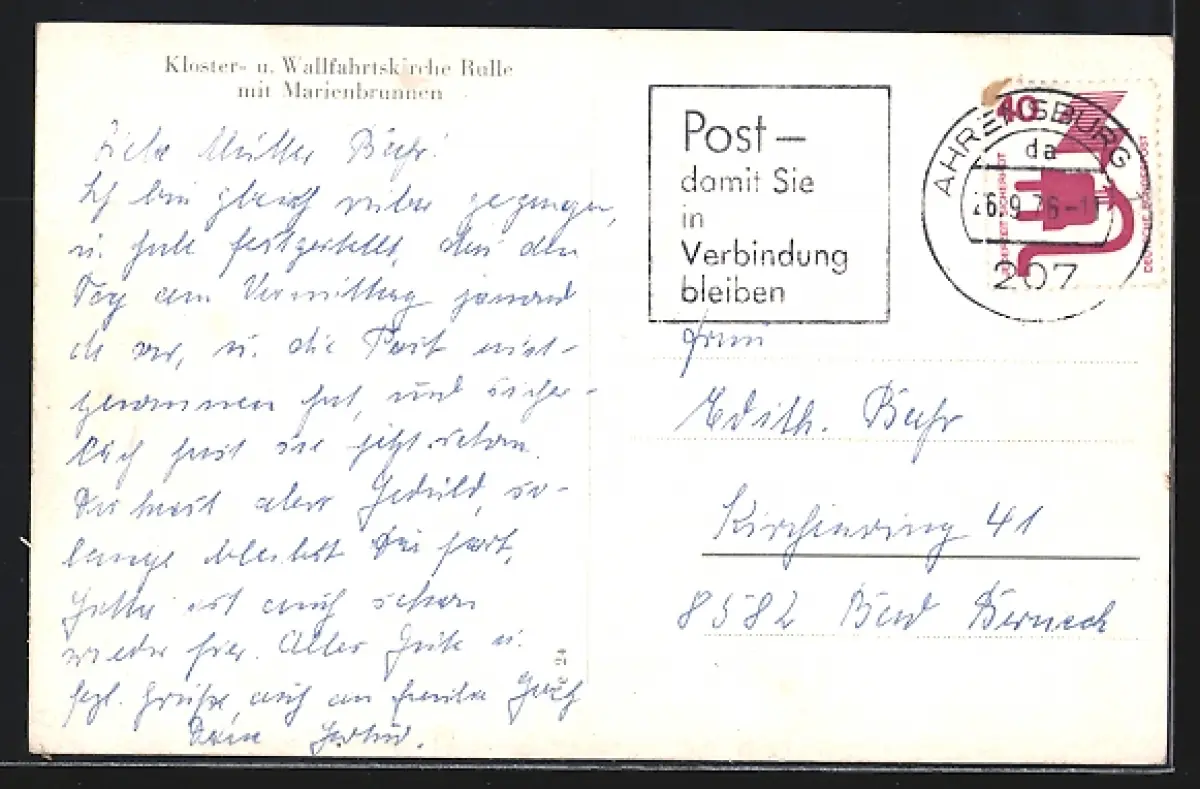 Kloster- u. Wallfahrtskirche Rulle
mit Marienbrunnen
Liebe Mutter Bahr!
Ich bin gleich rüber gegangen,
u. habe festgestellt, das den
Tag am Vormittag jemand
da war, u. die Post mit-
genommen hat, und sicher-
lich hast sie jetzt schon.
Du hast aber Geduld, so-
lange bleibst Du fort,
ist auch schon
wieder hier. Alles Gute u.
hzl. Grüße, auch an
Deine
24
Post –
damit Sie
in
Verbindung
bleiben
AHRENSBURG
da
26.9.76-11
207
40
UNFALLVERHÜTUNG
DEUTSCHE BUNDESPOST
Frau
Edith. Bahr
Kirchenring 41
8582 Bad Berneck